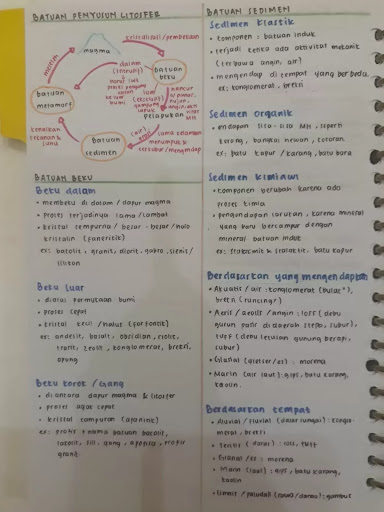 BATUAN PENYUSUN LITOSFER
kristalisasi / pembekuan
magma
melting
dalam
(intrusi)
batuan
beku
luar
batuan
metamorf
pelapukan
kenaikan
tekanan &
suhu
Batuan
sedimen
(air)
lama kelamaan
menumpuk &
tersebar / mengendap
BATUAN BEKU
Beku dalam
• membeku di dalam / dapur magma
• proses terjadinya lama / lambat
• kristal sempurna / besar - besar / holo
kristalin (faneritik)
ex: batolit, granit, diorit, gabro, sienit /
Beku luar
• diatas permukaan bumi
• proses cepat
• kristal kecil / halus (porforitik)
ex: andesit, basalt, obsidian, riolit,
konglomerat, breksi,
apung
Beku korok / Gang
• diantara dapur magma & litosfer
• proses agak cepat
• kristal campuran (afanitik)
granit
BATUAN SEDIMEN
Sedimen klastik
• komponen : batuan induk
• terjadi ketika ada aktivitas mekanik
(terbawa angin, air)
• mengendap di tempat yang berbeda
ex: konglomerat, breksi
Sedimen organik
• endapan sisa - sisa MH, seperti
karang, bangkai hewan, cotoran
ex: batu kapur / karang, batu bara
Sedimen kimiawi
• komponen berubah karena ada
proses kimia
• pengendapan larutan, karena mineral
yang baru bercampur dengan
mineral batuan induk
ex: stalakmit & stalaktit, batu kapur
Berdasarkan yang mengendapkan
• Akuatis / air : konglomerat (bulat"),
breksi (runcing")
• Aeris / aeolis / angin : loss (debu
gurun pasir di daerah stepa, subur),
tuff (debu letusan gunung berapi,
subur)
• Glasial (gletser / es) : morena
• Marin (air laut) : gips, batu karang,
kaolin
Berdasarkan tempat
• Aluvial / fluvial (dasar sungai) : konglo-
merat, breksi
• Teistis (darat) : loss, tuff
• Glasial / es : morena
• Marin (laut) : gips, batu karang,
kaolin
• limnis / paludal (rawa / danau) : gambut